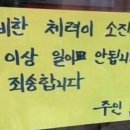 비한 체력이 소진
이상 일이 안됩니다
죄송합니다
주인